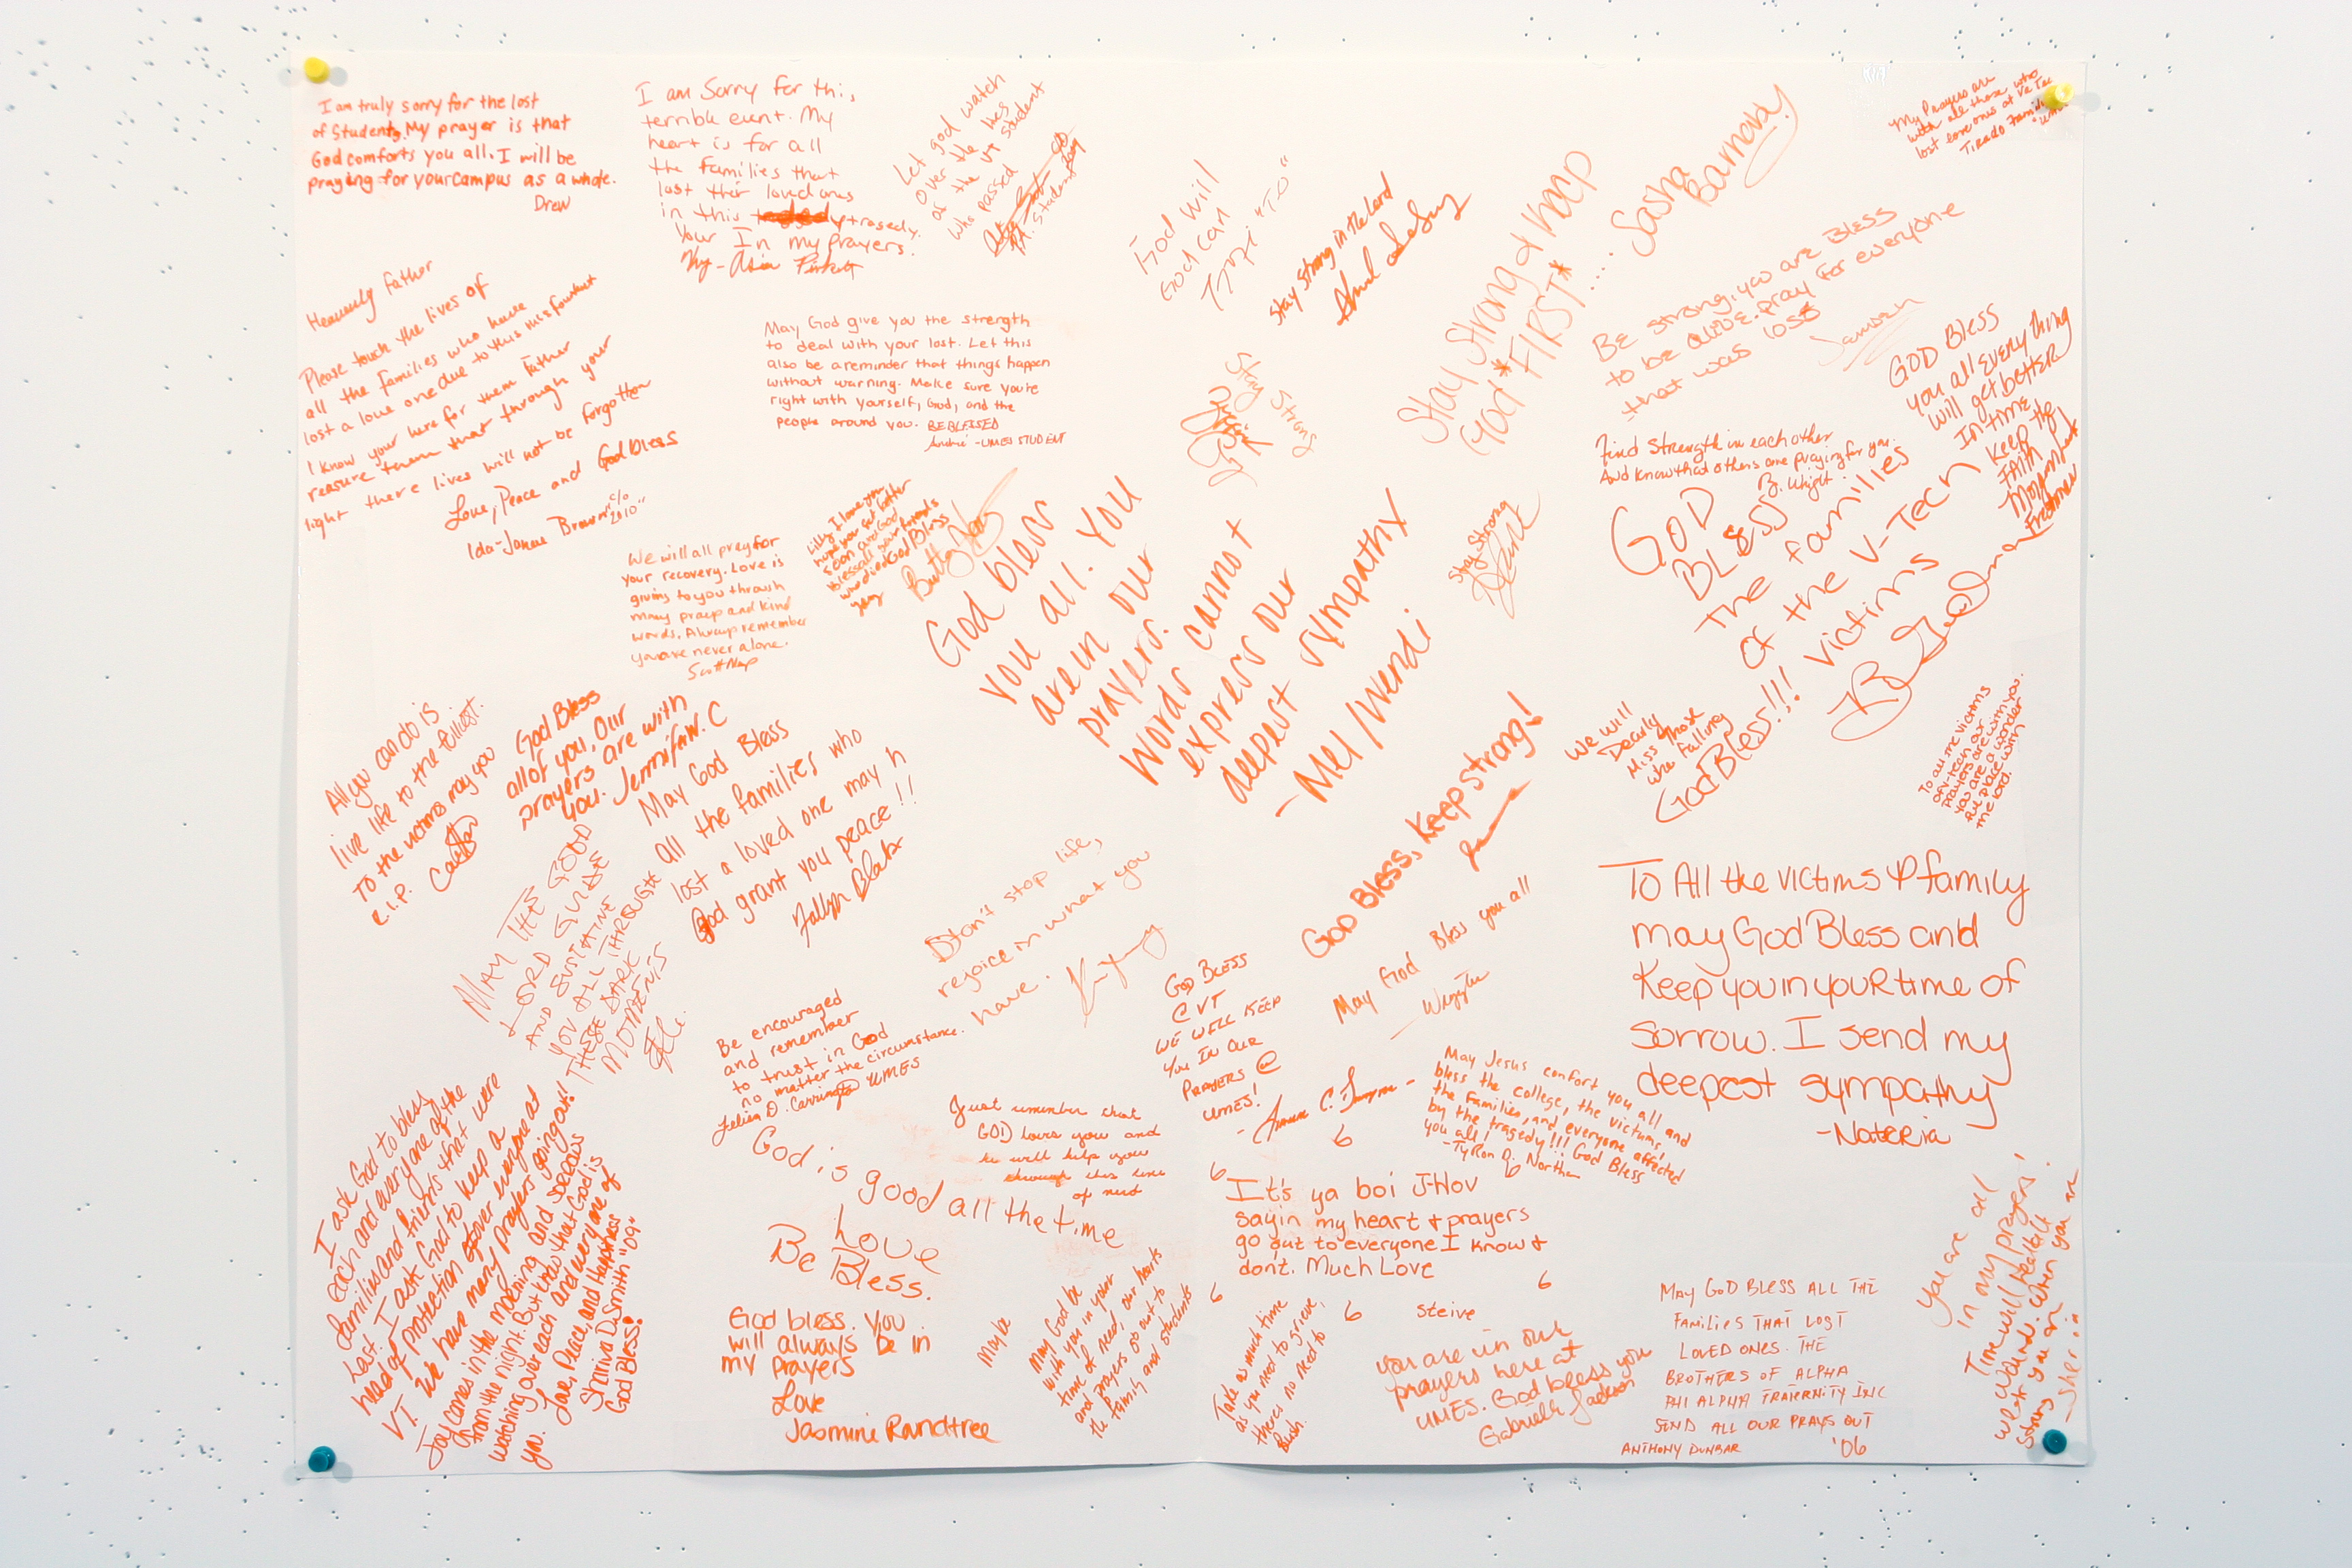 I am truly sorry for the lost
of Students. My prayer is that
God comforts you all. I will be
praying for your campus as a whole.
Drew
I am Sorry for this
terrible event. My
heart is for all
the families that
lost their loved ones
in this tragedy.
Your In my prayers.
Ky-Asia
Let god watch
over the lives
of the VT student
who passed
God will
God can
"TO"
Stay Strong in the Lord
Stay Strong & keep
God *FIRST* ....
Sasha
Barnaby
My Prayers are
with all those who
lost love ones at Va Tec
Tirado Family
Be strong, you are Bless
to be alive. pray for everyone
that was lost
GOD Bless
you all every thing
will get better
In time
Keep the
FAith
Heavenly Father
Please touch the lives of
all the families who have
lost a love one due to this
I know your here for them Father
reasure them that through your
light there lives will not be forgotten
Love, Peace and God Bless
Ida-Janae Brown "c/o
2010"
May God give you the strength
to deal with your lost. Let this
also be a reminder that things happen
without warning. Make sure you're
right with yourself, God, and the
people around you. BE BLESSED
André - UMES STUDENT
Stay
Strong
Find Strength in each other
And know that others are praying for you.
B. Wright
GOD
Bless
The families
of the V-Tech
victims
We will all pray for
your recovery. Love is
giving to you through
many prayers and kind
words. Always remember
you are never alone.
Lilly I love you
hope you get better
soon and God
bless all your friends
God Bless
God bless
you all. You
are in our
prayers.
Words cannot
express our
deepest sympathy
- Mel / Wendi
Stay Strong
We will
Dearly
Miss Those
who falling
God Bless!!!
To all the victims
of v-tech our
prayers are with you.
you are a wonder
ful place with
the lord.
All you can do is
live life to the fullest.
TO the victims may you
R.I.P.
God Bless
all of you, Our
prayers are with
you. Jennifer W. C
May God Bless
all the families who
lost a loved one may h
God grant you peace!!
Fallyn Blake
MAY THE GOD
LORD GUIDE
AND SUSTAINE
YOU ALL THROUGH
THESE DARK
MOMENTS
Don't stop life,
rejoice in what you
have.
God Bless, Keep strong!
May God Bless you all
To All the victims & family
may God Bless and
Keep you in your time of
sorrow. I send my
deepest sympathy
- Nateria
Be encouraged
and remember
to trust in God
no matter the circumstance.
Felicia D. Carrington UMES
GOD BLESS
@ VT
WE WILL KEEP
YOU IN OUR
PRAYERS @
UMES!
May Jesus confort you all and
bless the college, the victums,
the families, and everyone affected
by the tragedy!!! God Bless
you all!
-TyRon D. Northan
Just remember that
GOD loves you and
he will help you
through this time
of need
God is good all the time
Love
Be Bless.
I ask God to bless
each and every one of the
families and friends that were
lost. I ask God to keep a
head of protection over everyone at
VT. We have many prayers going out!!
Joy comes in the morning and
from the night. But know that God is
watching over each and every one of
you. Love, Peace, and Happiness
Sharina D. Smith "09"
God Bless!
6
6
It's ya boi J-Hov
sayin my heart & prayers
go out to everyone I know &
don't. Much Love
6
6
6
6
Steive
God bless. You
will always be in
my prayers
Love
Jasmine Roundtree
Maybe
May God be
with you in your
time of need, our hearts
and prayers go out to
the family and students
Take as much time
as you need to grieve,
theres no need to
Rush.
You are in our
prayers here at
UMES. God bless you
Gabrielle Jackson
MAY GOD BLESS ALL THE
FAMILIES THAT LOST
LOVED ONES. THE
BROTHERS OF ALPHA
PHI ALPHA FRATERNITY INC
SEND ALL OUR PRAYS OUT
ANTHONY DUNBAR '06
You are all
in my prayers!
Time will heal all
wounds. When you are
weak you are
strong